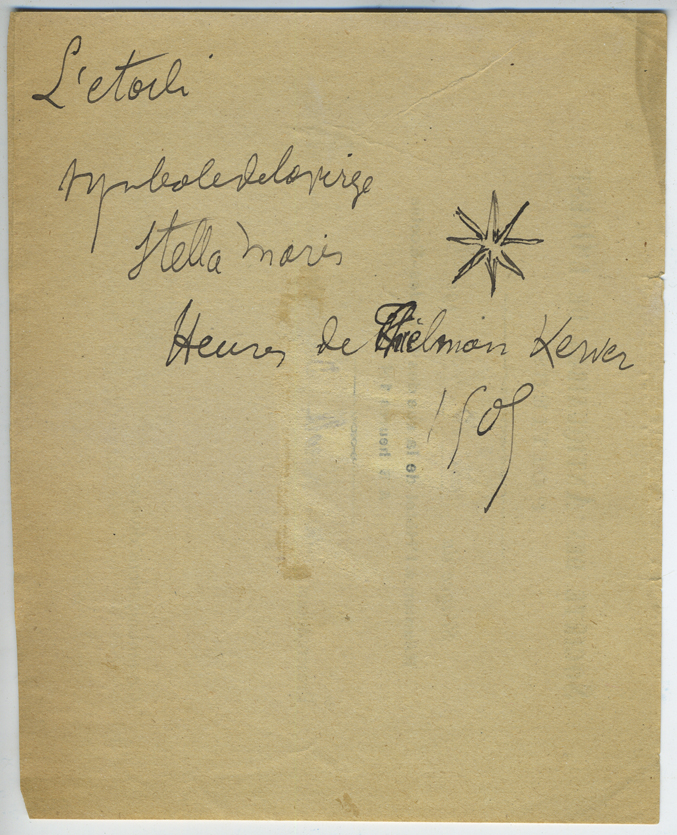 L'etoile
symbole de la virge
Stella Maris
Heures de Thielman Kerver
1505